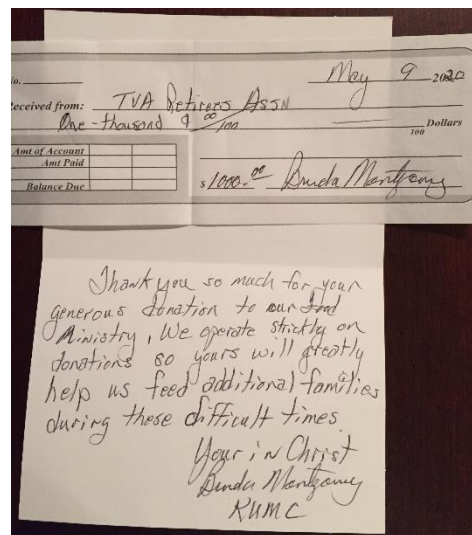 o.
May 9 2020
eceived from: TVA Retirees Assn
One-thousand & 00/100 Dollars
100
Amt of Account
Amt Paid
Balance Due
$ 1000.00 Montgomery
Thank you so much for your
generous donation to our food
Ministry, We operate strictly on
donations so yours will greatly
help us feed additional families
during these difficult times.
Your in Christ
Montgomery
KUMC